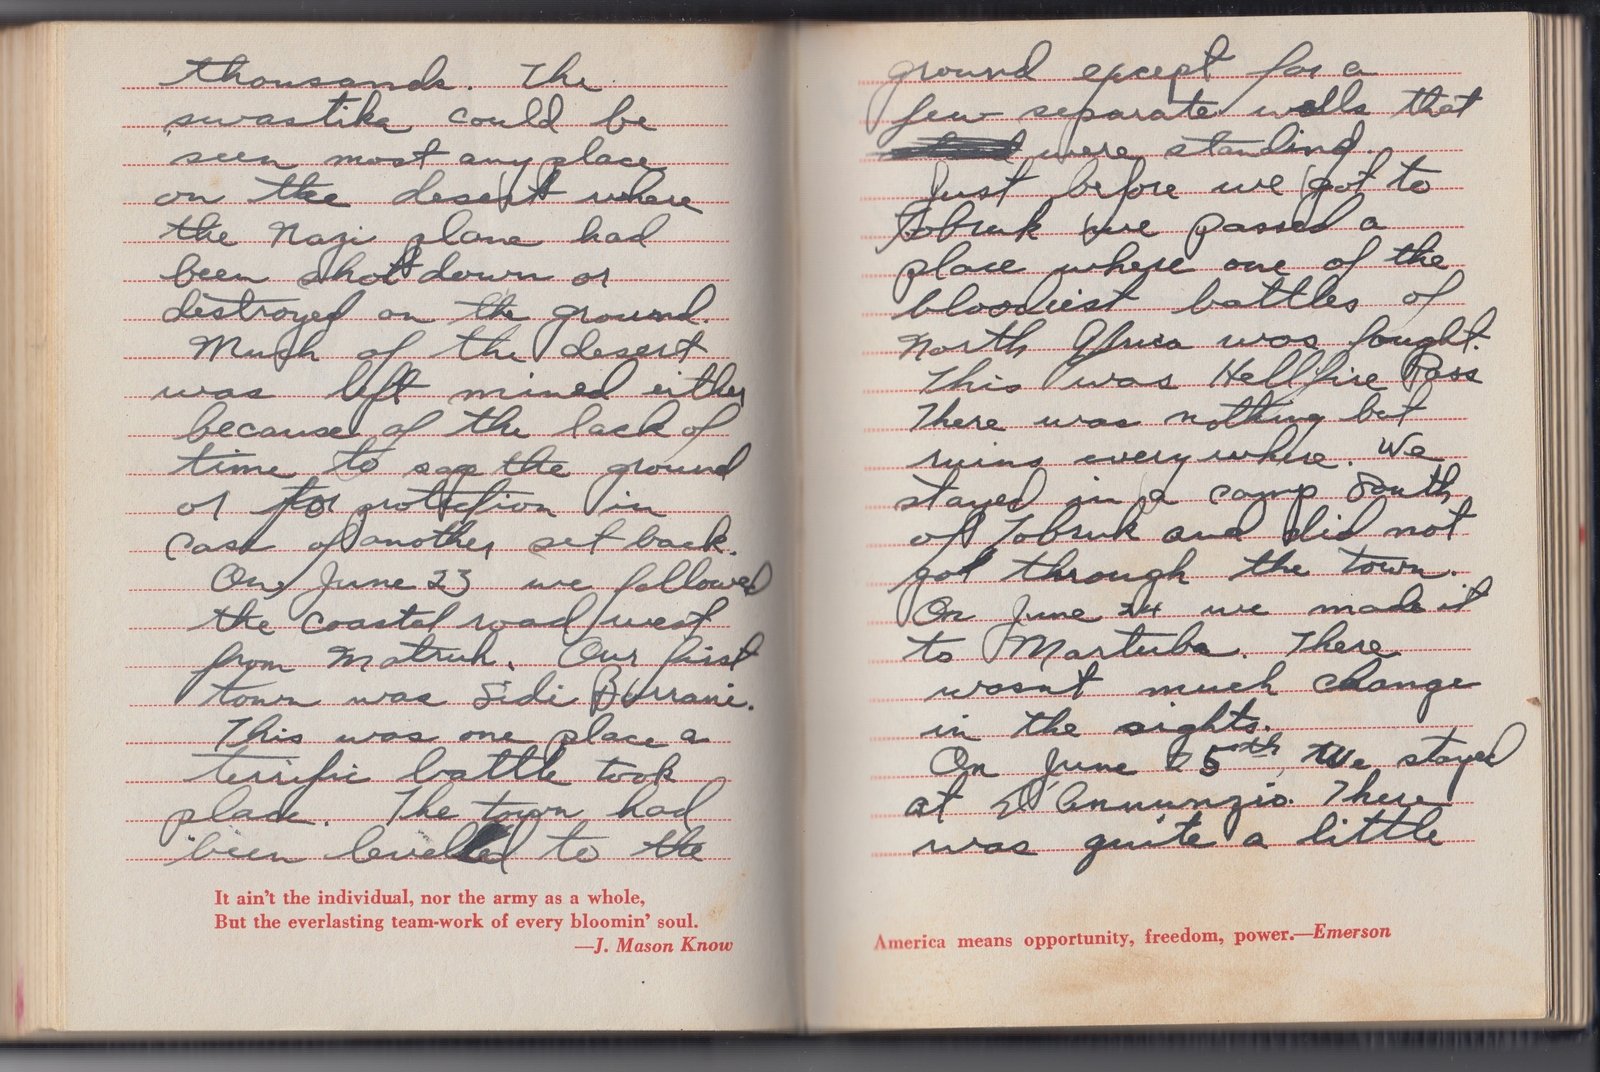 thousands. The
swastika could be
seen most any place
on the desert where
the Nazi plane had
been shot down or
destroyed on the ground.
Much of the desert
was left mined either
because of the lack of
time to sap the ground
or for protection in
case of another set back.
On June 23 we followed
the coastal road west
from Matruh. Our first
town was Sidi Burrani.
This was one place a
terrific battle took
place. The town had
been levelled to the
It ain't the individual, nor the army as a whole,
But the everlasting team-work of every bloomin' soul.
—J. Mason Know
ground except for a
few separate walls that
were standing.
Just before we got to
Tobruk we passed a
place where one of the
bloodiest battles of
North Africa was fought.
This was Hellfire Pass
There was nothing but
ruins everywhere. We
stayed in a camp South
of Tobruk and did not
got through the town.
On June 24 we made it
to Martuba. There
wasnt much change
in the sights.
On June 25th, We stayed
at D'Annunzio. There
was quite a little
America means opportunity, freedom, power.—Emerson